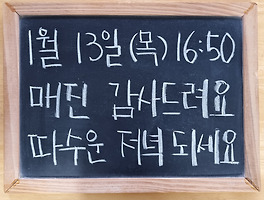 1월 13일 (목) 16:50
매진 감사드려요
따수운 저녁 되세요